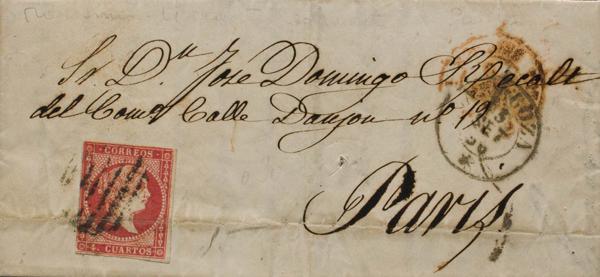 Sr. Dn. Jose Domingo Recalt
del Comº Calle Danjou nº 19
Paris
CORREOS
4. CUARTOS